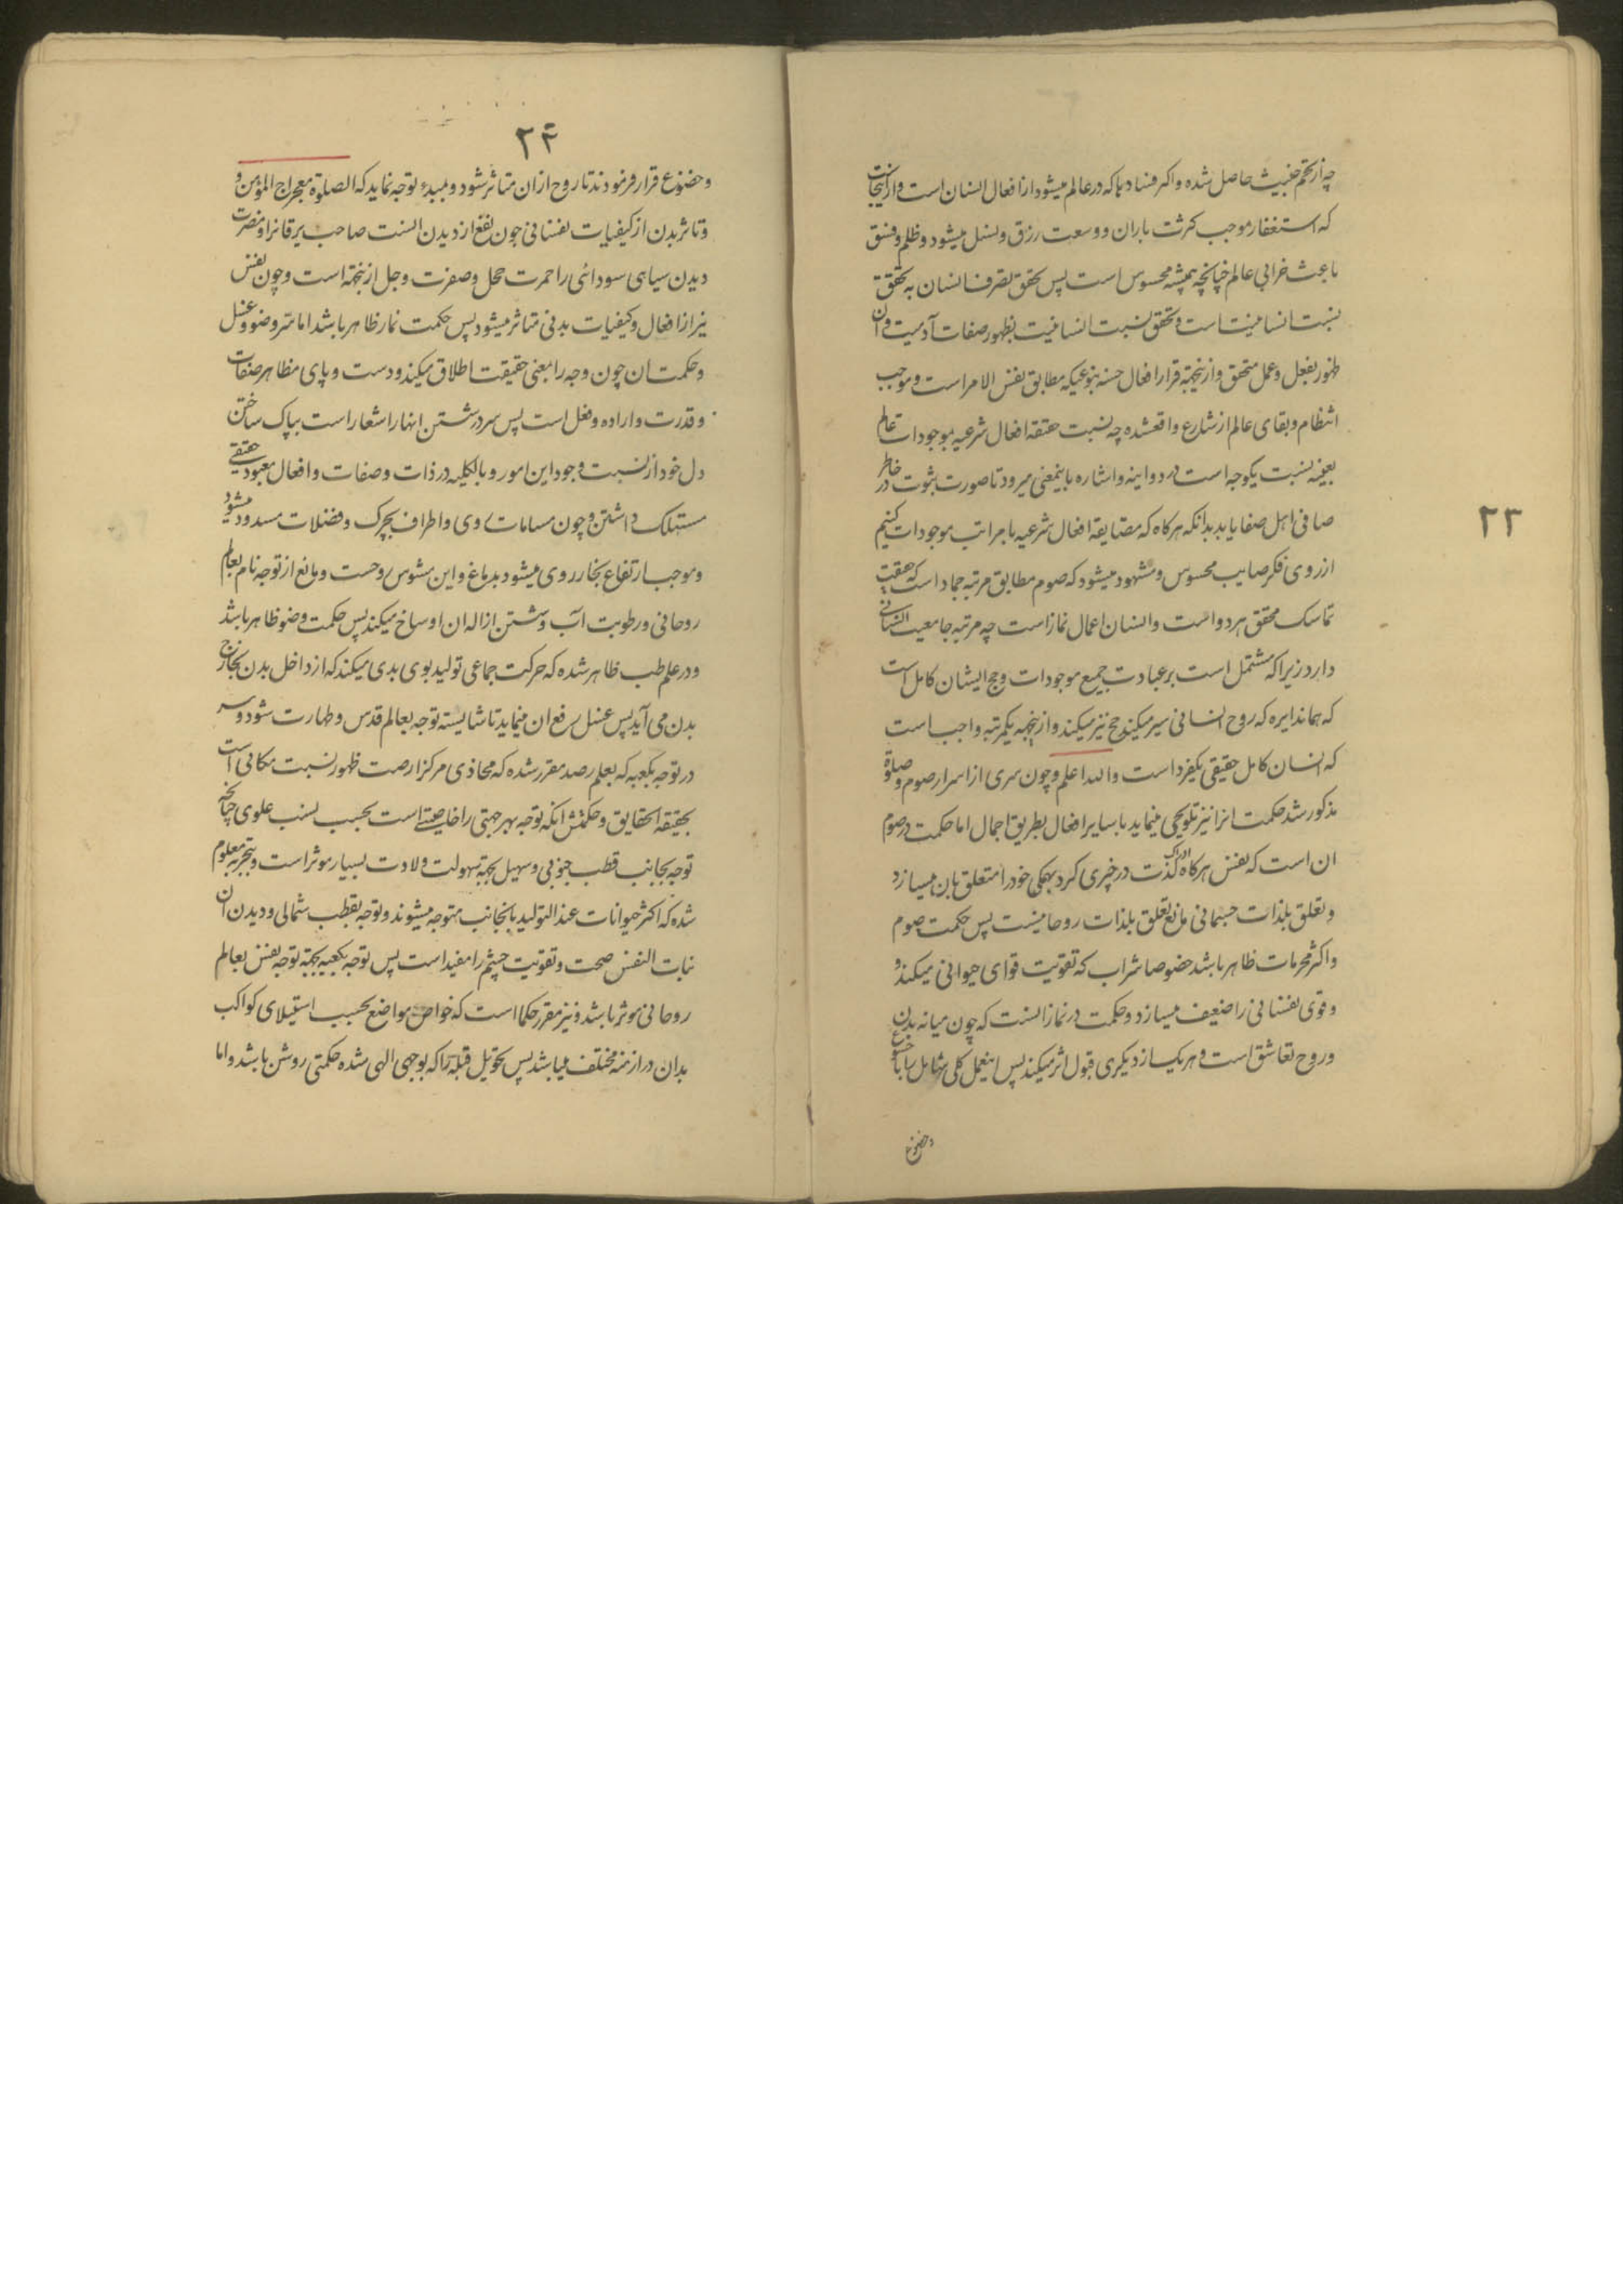 ۲۳
چه از تخم خبیث حاصل شده و اکر فسادها که در عالم میشود از افعال انسان است و از اینجاست
که استغفار موجب کثرت باران و وسعت رزق و نسل میشود و ظلم و فسق
باعث خرابی عالم چنانچه همیشه محسوس است پس تحقق تصرف انسان به تحقق
نسبت انسانیت است و تحقق نسبت انسانیت بظهور صفات آدمیت و ان
ظهور بفعل و عمل متحقق و از ینجهة قرار افعال حسنه بنوعیکه مطابق نفس الامر است و موجب
انتظام و بقای عالم از شارع واقعشده چه نسبت حقیقة افعال شرعیه بموجودات عالم
بعینه نسبت یکوجه است در دو اینه و اشاره باینمعنی میرود تا صورت ثبوت در خاطر
صافی اهل صفا یابد بدانکه هرکاه که مضایقة افعال شرعیه با مراتب موجودات کنیم
از روی فکر صایب محسوس و مشهود میشود که صوم مطابق مرتبه جماد است که حقیقت
تماسک محقق هر دو است و انسان اعمال نماز است چه مرتبه جامعیت انسانی
دارد زیرا که مشتمل است بر عبادت جمیع موجودات و حج ایشان کامل است
که هماندایره که روح انسانی سیر میکند حج نیز میکند و از ینجهة یکمرتبه واجب است
که انسان کامل حقیقی یکفرد است والله اعلم و چون سری از اسرار صوم و صلوة
مذکور شد حکمت انرا نیز تلویحی مینماید با سایر افعال بطریق اجمال اما حکمت در صوم
ان است که نفس هرکاه ادراک لذت در چیزی کرد بهمکی خود را متعلق بان میسازد
و تعلق بلذات جسمانی مانع تعلق بلذات روحانیست پس حکمت صوم
و اکثر محرمات ظاهر باشد خصوصا شراب که تقویت قوای حیوانی میکند و
و قوی نفسانی را ضعیف میسازد و حکمت در نماز انست که چون میانه بدن
و روح تعاشق است و هر یک از دیکری قبول اثر میکند پس اینعمل کلی شامل را با خشوع
وخضوع
۲۴
و خضوع قرار فرمودند تا روح از ان متاثر شود و بمبدء توجه نماید که الصلوة معراج المؤمن و
و تاثر بدن از کیفیات نفسانی چون نفع از دیدن انست صاحب یرقانرا و مضرت
دیدن سیاهی سودائی را حمرت خجل و صفرت وجل از ینجهة است و چون نفس
نیز از افعال و کیفیات بدنی متاثر میشود پس حکمت نماز ظاهر باشد اما سر وضو و غسل
و حکمت ان چون وجه را بمعنی حقیقت اطلاق میکند و دست و پای مظاهر صفات
و قدرت و اراده و فعل است پس سر در شستن اینها را اشعار است بپاک ساختن
دل خود از نسبت وجود این امور و بالکلیه در ذات و صفات و افعال معبود حقیقی
مستهلک داشتن و چون مسامات روی و اطراف بچرک و فضلات مسدود میشود
و موجب ارتفاع بخار ردی میشود بدماغ و این مشوس روحست و مانع از توجه تام بعالم
روحانی و رطوبت آب و شستن ازاله ان اوساخ میکند پس حکمت وضو ظاهر باشد
و در علم طب ظاهر شده که حرکت جماعی تولید بوی بدی میکند که از داخل بدن بخارج
بدن می آید پس غسل رفع ان مینماید تا شایسته توجه بعالم قدس و طهارت شود و سر
در توجه بکعبه که بعلم رصد مقرر شده که محاذی مرکز ارضست ظهور نسبت مکانی است
بحقیقة الحقایق و حکمتش انکه توجه بهر جهتی را خاصیتی است بحسب نسب علوی چنانچه
توجه بجانب قطب جنوبی و سهیل بجهة سهولت ولادت بسیار موثر است و بتجربه معلوم
شده که اکثر حیوانات عند التولید بانجانب متوجه میشوند و توجه بقطب شمالی و دیدن ان
نبات النعش صحت و تقویت چشم را مفید است پس توجه بکعبه بجهة توجه نفس بعالم
روحانی موثر باشد و نیز مقرر حکما است که خواص مواضع بحسب استیلای کواکب
بدان در ازمنه مختلف میباشد پس تحویل قبله را که بوحی الهی شده حکمتی روشن باشد و اما